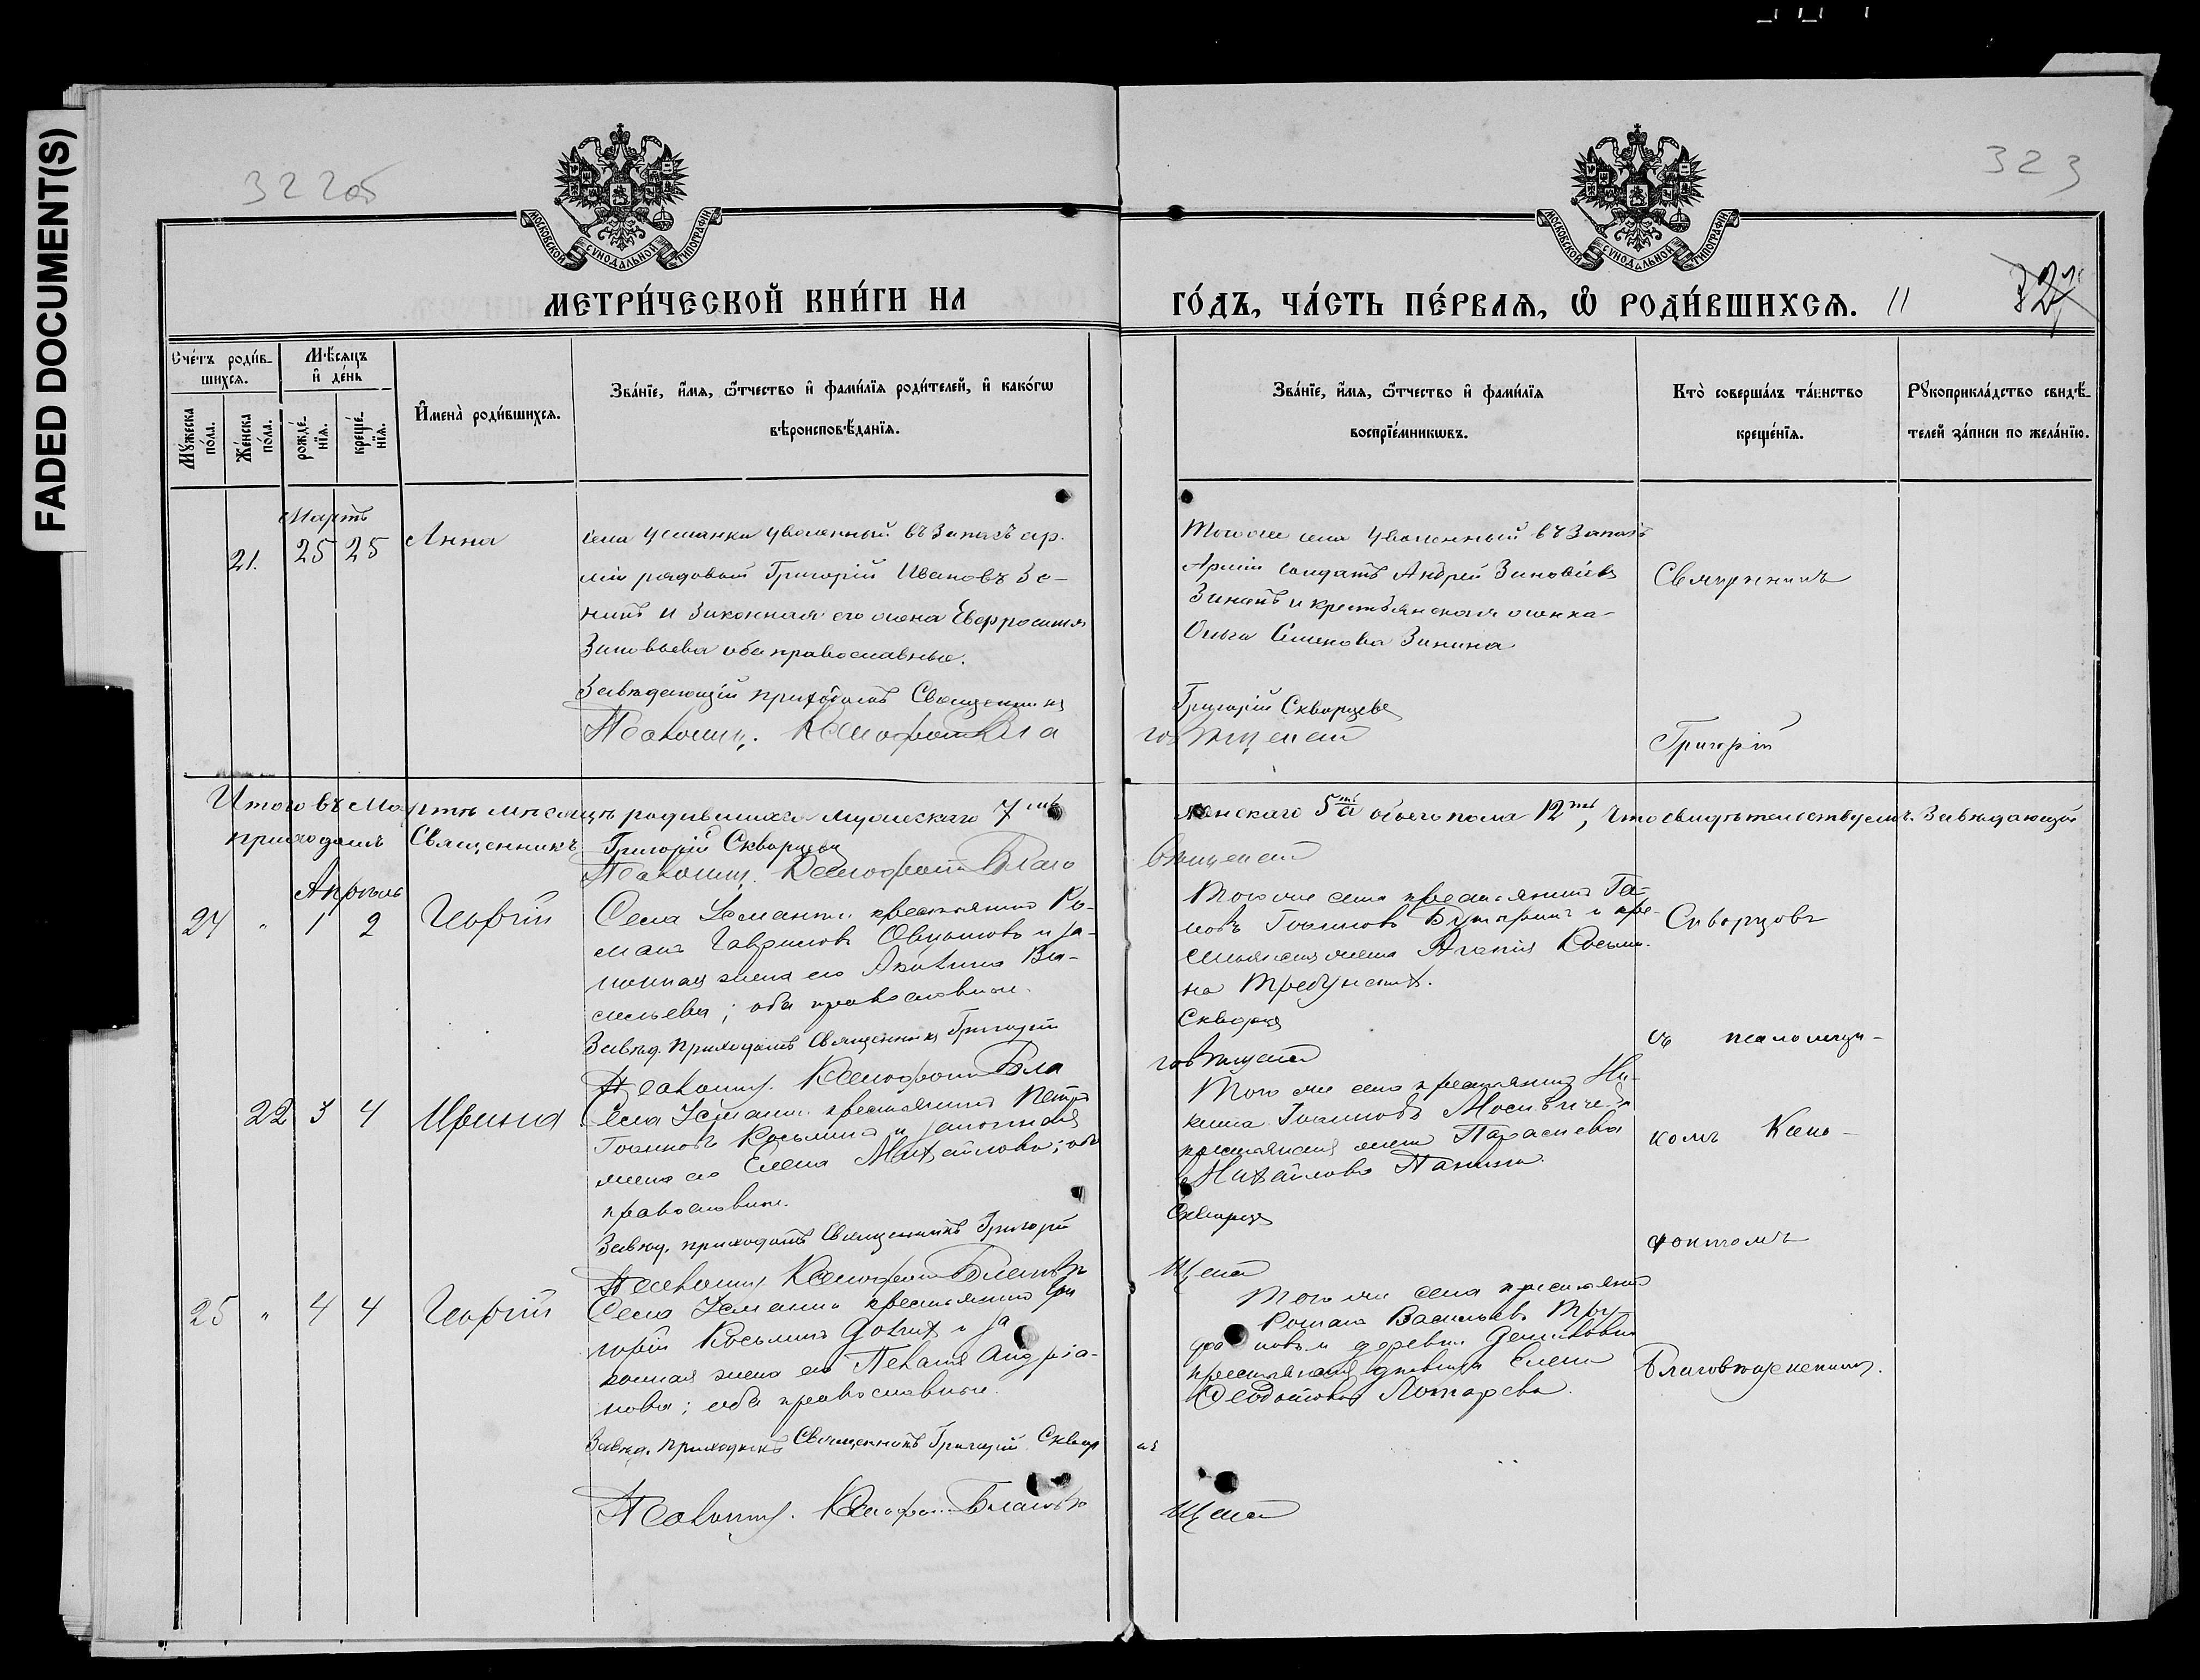 FADED DOCUMENT(S)
322об
323
МОСКОВСКОЙ СУНОДАЛЬНОЙ ТИПОГРАФІИ
МОСКОВСКОЙ СУНОДАЛЬНОЙ ТИПОГРАФІИ
МЕТРИ́ЧЕСКОЙ КНИ́ГИ НА
ГО́ДЪ, ЧА́СТЬ ПЕ́РВАЯ, Ѡ РОДИ́ВШИХСЯ. 11
Сче́тъ роди́в-
шихся.
Мѣ́сяцъ
и де́нь
Му́жеска
по́ла.
Же́нска
по́ла.
рожде́-
нїя.
креще́-
нїя.
Имена̀ роди́вшихся.
Зва́нїе, и́мя, ѻ́тчество и фами́лїя роди́телей, и како́гѡ
вѣроисповѣ́данїя.
Зва́нїе, и́мя, ѻ́тчество и фами́лїя
воспрїе́мникѡвъ.
Кто̀ соверша́лъ та́инство
креще́нїя.
Рукоприкла́дство свидѣ́-
телей за́писи по жела́нїю.
Мартъ
21. 25 25 Анна
села Усманки уволенный въ запасъ ар-
міи рядовой Григорій Ивановъ Зе-
нинъ и законная его жена Евфросинія
Зиновьева оба православные.
Завѣдающій приходомъ Священникъ
Псаломщ. Ксенофонтъ Бла
Тогоже села уволенный въ запасъ
Арміи солдатъ Андрей Зиновіевъ
Зининъ и крестьянская женка
Ольга Семенова Зинина
Григорій Скворцовъ
говѣщенскій
Священникъ
Григорій
Итого въ Мартѣ мѣсяцѣ родившихся мужескаго 7ть
женскаго 5ть а обоего пола 12ть, что свидѣтельствуемъ. Завѣдающій
приходомъ Священникъ Григорій Скворцовъ
Псаломщ. Ксенофонтъ Благо
вѣщенскій
Апрѣль
24 " 1 2 Георгій
Села Усманки крестьянинъ Ро-
манъ Гавриловъ Овчинниковъ и за-
конная жена его Акилина Ва-
сильева; оба православные.
Завѣд. приходомъ Священникъ Григорій
Псаломщ. Ксенофонтъ Бла
Того же села крестьянинъ
новъ Іоанновъ и кре-
стьянская жена Агапія Косьми-
на
Скворцов
говѣщенскій
Скворцовъ
съ псаломщи-
22 3 4 Ирина
Села Усманки крестьянинъ Петръ
Іоанновъ Косьминъ и законная
жена его Елена Михайлова; оба
православные.
Завѣд. приходомъ Священникъ Григорій
Псаломщ. Ксенофонтъ Благовѣ
Того же села крестьянинъ Ни-
кита Іоанновъ
крестьянская жена Параскева
Михайлова Панина.
Скворцовъ
щенскій
комъ Ксено-
фонтомъ
25 " 4 4 Георгій
Села Усманки крестьянинъ Гри
горій Косьминъ и за
конная жена его Пелагія Андріа-
нова; оба православные.
Завѣд. приходомъ Священникъ Григорій Сквор
Псаломщ. Ксенофонтъ Благовѣ
Того же села крестьянинъ
Романъ Васильевъ Тру-
фановъ и деревни
крестьянская дѣвица Елена
Ѳеодотова
щенскій
Благовѣщенскимъ.